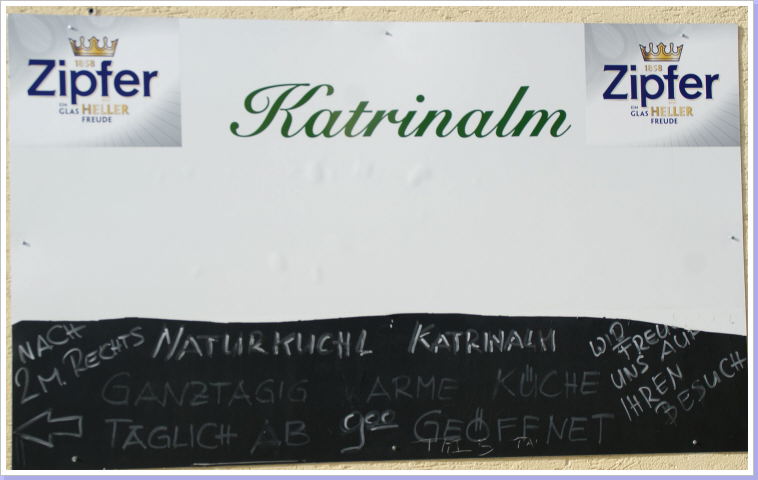 1858
Zipfer
EIN GLAS HELLER FREUDE
Katrinalm
1858
Zipfer
EIN GLAS HELLER FREUDE
NACH
2 M. RECHTS
NATURKUCHL KATRINALM
GANZTAGIG WARME KÜCHE
TÄGLICH AB 9°° GEÖFFNET
WIR
FREUEN
UNS AUF
IHREN
BESUCH